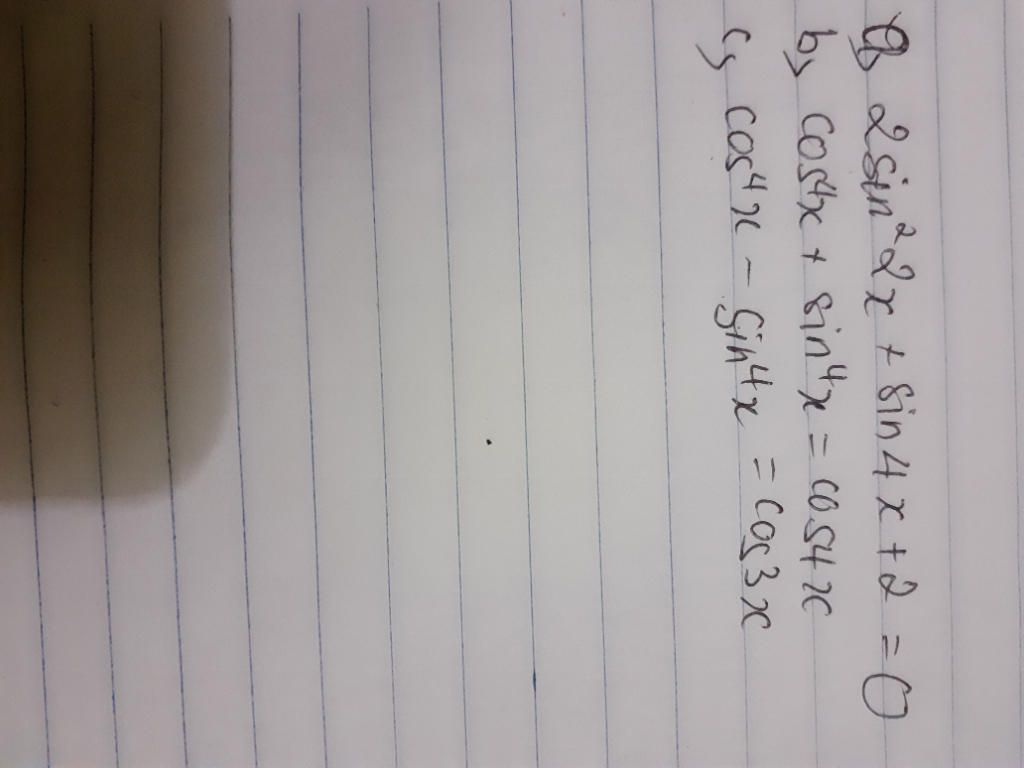 a, 2sin²2x + sin4x + 2 = 0
b, cos⁴x + sin⁴x = cos4x
c, cos⁴x - sin⁴x = cos3x